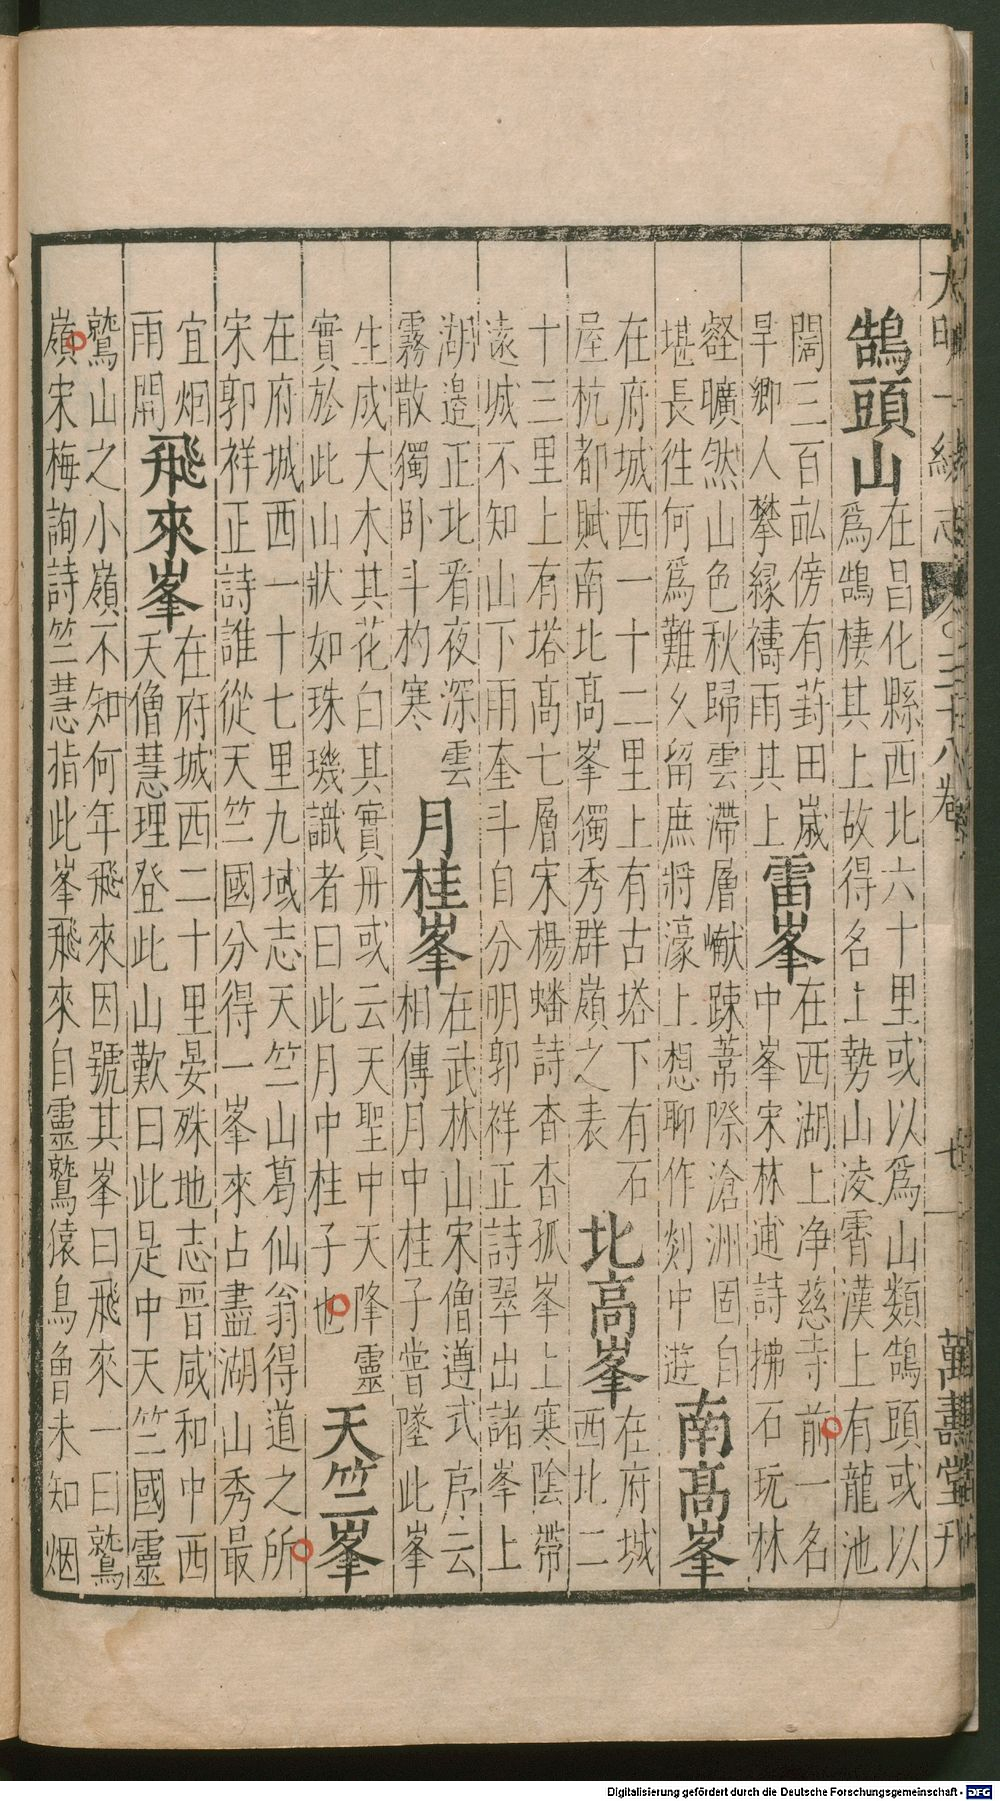 大明一統志 卷之三十八卷 七 萬壽堂刊
鵠頭山
在昌化縣西北六十里或以爲山類鵠頭或以
爲鵠棲其上故得名土勢山凌霄漢上有龍池
闊三百畝傍有葑田嵗
旱鄉人攀緣禱雨其上
雷峯
在西湖上净慈寺前一名
中峯宋林逋詩拂石玩林
壑曠然山色秋歸雲滯層巘踈蔕際滄洲固自
堪長徃何爲難久留庶將濠上想聊作剡中遊
南高峯
在府城西一十二里上有古塔下有石
屋杭都賦南北高峯獨秀群嶺之表
北高峯
在府城
西北二
十三里上有塔高七層宋楊蟠詩杳杳孤峯上寒隂帶
遠城不知山下雨奎斗自分明郭祥正詩翠出諸峯上
湖邊正北看夜深雲
霧散獨卧斗杓寒
月桂峯
在武林山宋僧遵式序云
相傳月中桂子嘗墜此峯
生成大木其花白其實丹或云天聖中天降靈
實於此山狀如珠璣識者曰此月中桂子也
天竺峯
在府城西一十七里九域志天竺山葛仙翁得道之所
宋郭祥正詩誰從天竺國分得一峯來占盡湖山秀最
宜烱
雨開
飛來峯
在府城西二十里晏殊地志晉咸和中西
天僧慧理登此山歎曰此是中天竺國靈
鷲山之小嶺不知何年飛來因號其峯曰飛來一曰鷲
嶺宋梅詢詩竺慧指此峯飛來自靈鷲猿鳥曾未知烟
Digitalisierung gefördert durch die Deutsche Forschungsgemeinschaft - DFG